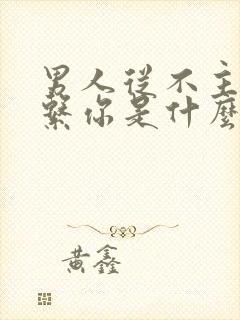 男人從不主
繫你是什麼
黃鑫